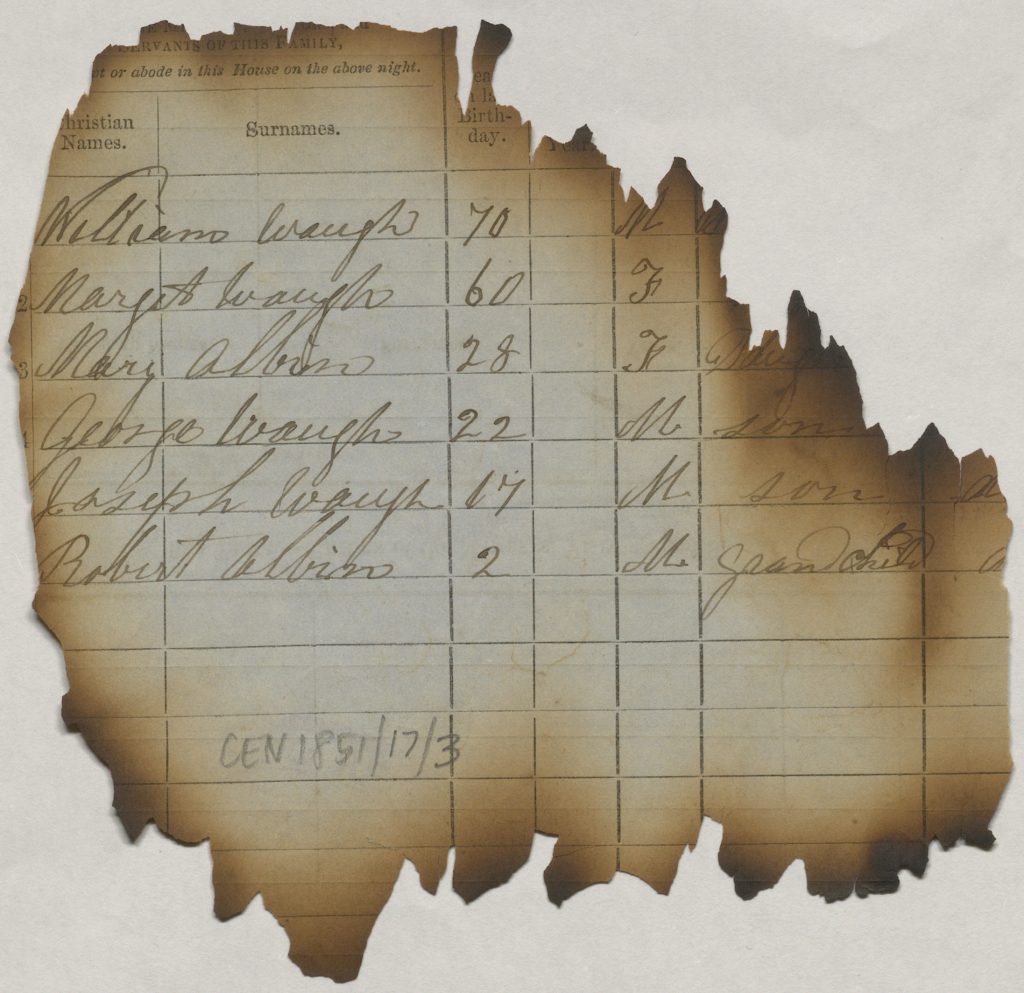 SERVANTS OF THIS FAMILY,
or abode in this House on the above night.
Christian Names. Surnames. Birth-day. Years
William Waugh 70 M
2 Marget Waugh 60 F
3 Mary Albin 28 F Daugh
George Waugh 22 M son
Joseph Waugh 17 M son a
Robert Albin 2 M grand child
CEN 1851/17/3